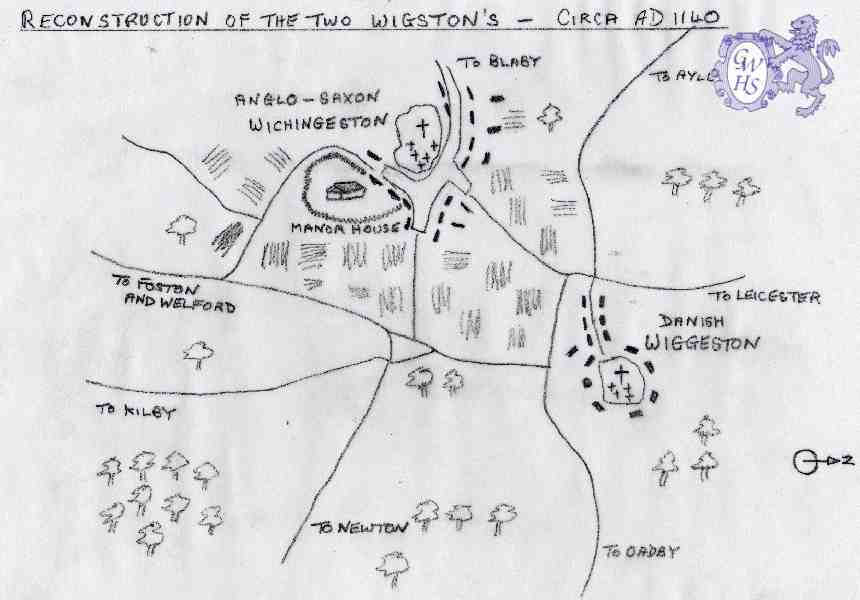 RECONSTRUCTION OF THE TWO WIGSTON'S – CIRCA AD 1140
TO BLABY
TO AYL
GW
HS
ANGLO-SAXON
WICHINGESTON
MANOR HOUSE
TO FOSTON
AND WELFORD
TO LEICESTER
DANISH
WIGGESTON
TO KILBY
N
TO NEWTON
TO OADBY